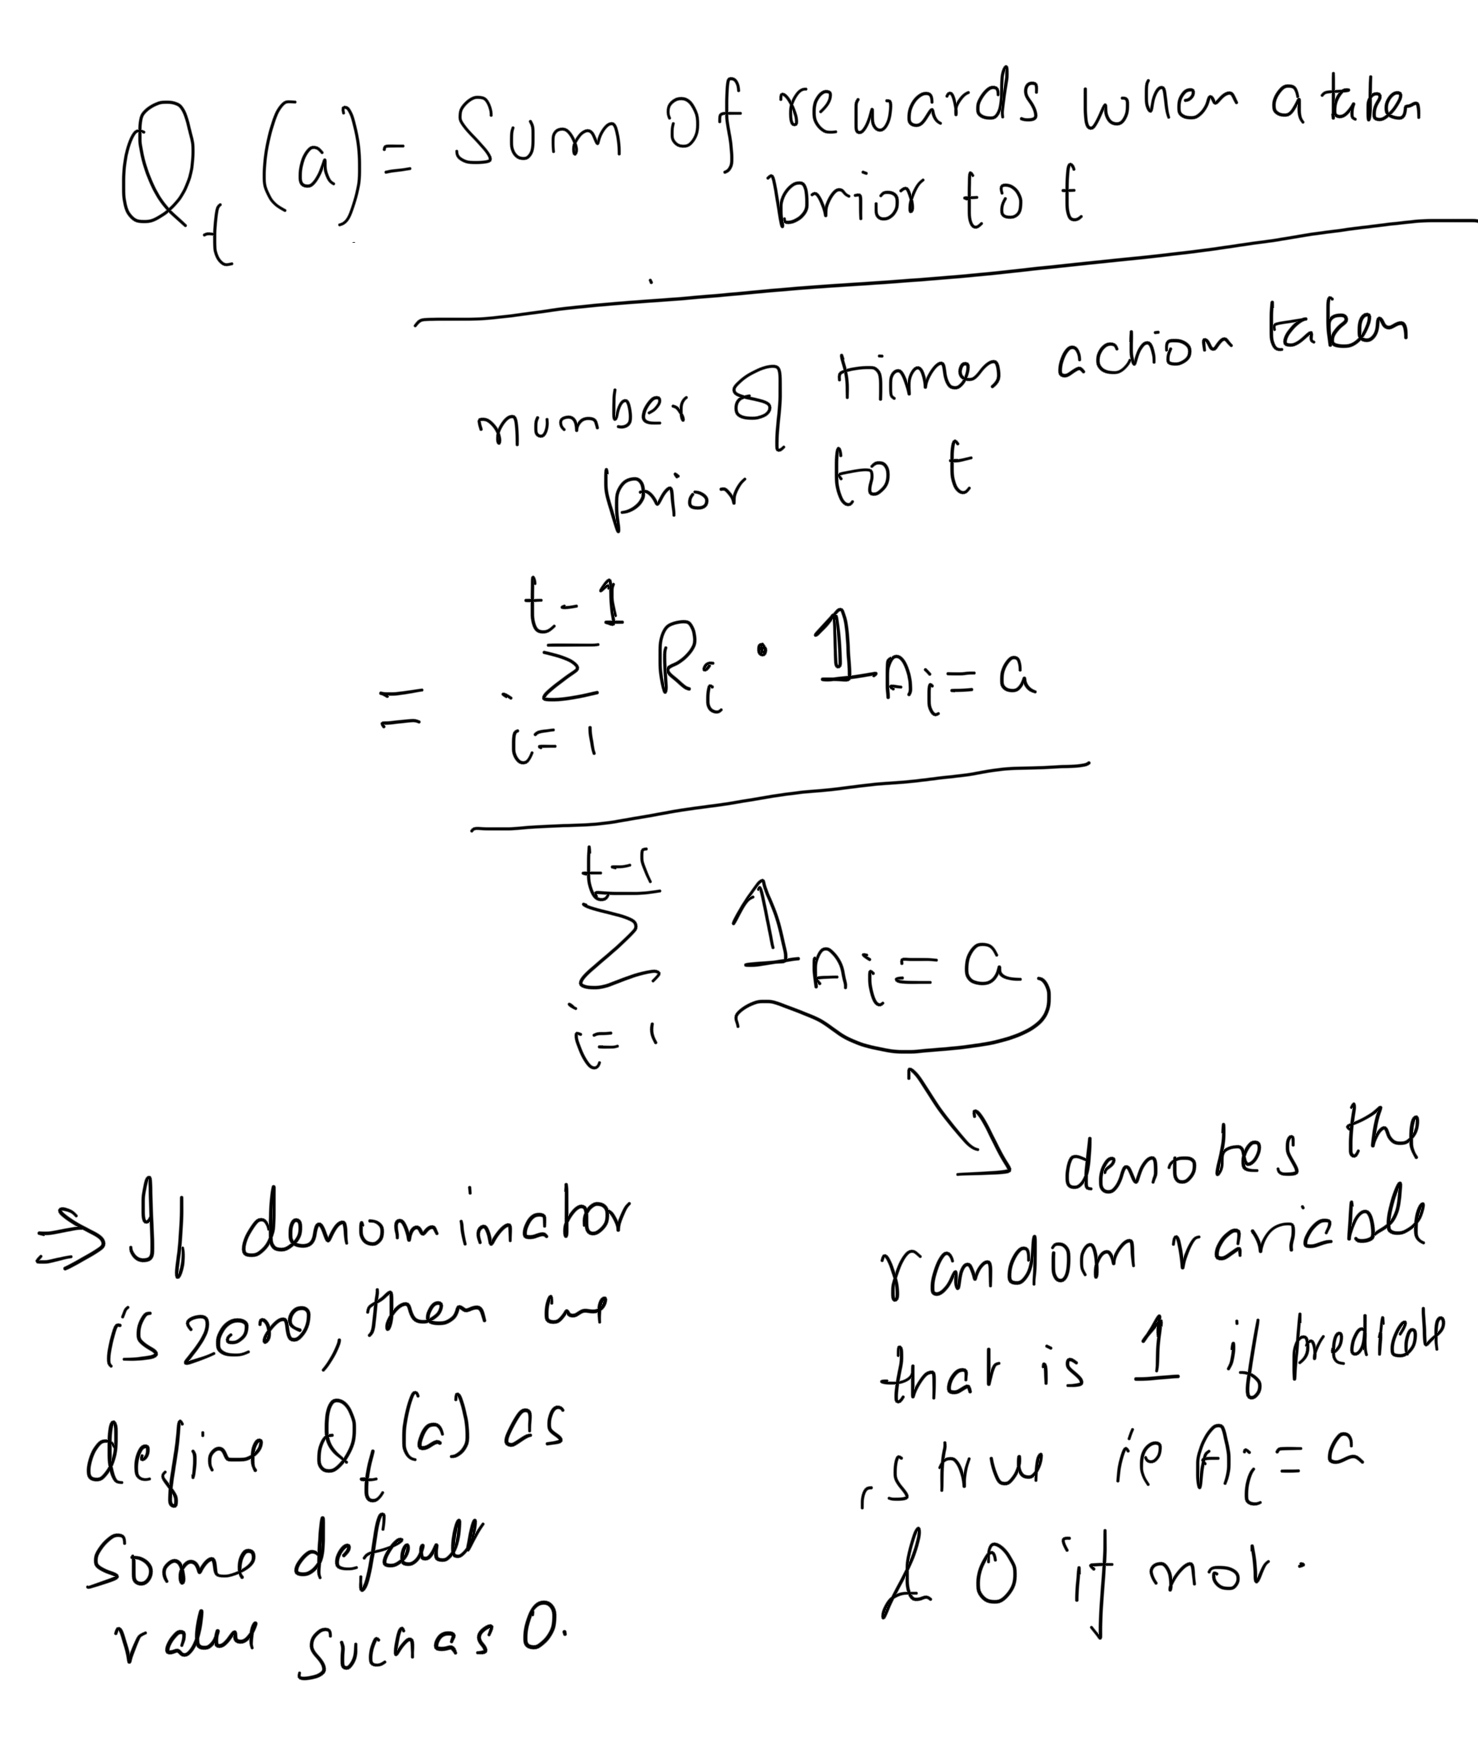 Q_t (a) = Sum of rewards when a taken
prior to t
number of times action taken
prior to t
= \frac{\sum_{i=1}^{t-1} R_i \cdot 𝟙_{A_i = a}}{\sum_{i=1}^{t-1} 𝟙_{A_i = a}}
⇒ If denominator
is zero, then we
define Q_t (a) as
Some default
value such as 0.
denotes the
random variable
that is 1 if predicate
is true ie A_i = a
& 0 if not.